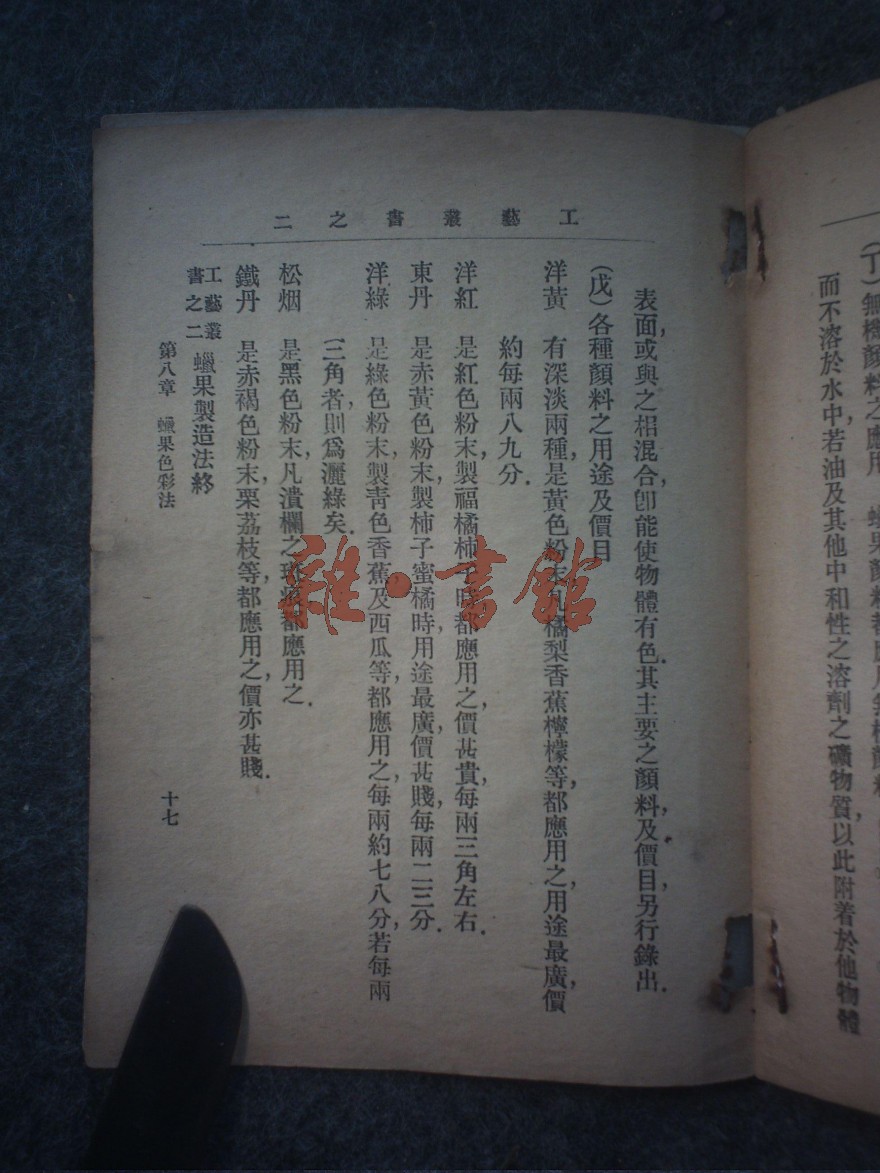 (丁)無機顏料之應用
而不溶於水中,若油及其他中和性之溶劑之礦物質,以此附着於他物體
工藝叢書之二
表面,或與之相混合,卽能使物體有色.其主要之顏料及價目另行錄出.
(戊)各種顏料之用途及價目
洋黃 有深淡兩種,是黃色粉末,凡橘梨香蕉檸檬等,都應用之,用途最廣,價
約每兩八九分.
洋紅 是紅色粉末,製福橘柿子時都應用之,價甚貴,每兩三角左右.
東丹 是赤黃色粉末,製柿子蜜橘時,用途最廣,價甚賤,每兩二三分.
洋綠 是綠色粉末,製靑色香蕉,及西瓜等,都應用之,每兩約七八分,若每兩
三角者,則爲灑綠矣.
松烟 是黑色粉末,凡潰爛之 都應用之.
鐵丹 是赤褐色粉末,栗荔枝等,都應用之,價亦甚賤.
工藝叢書之二 蠟果製造法終
第八章 蠟果色彩法
十七
雜·書館